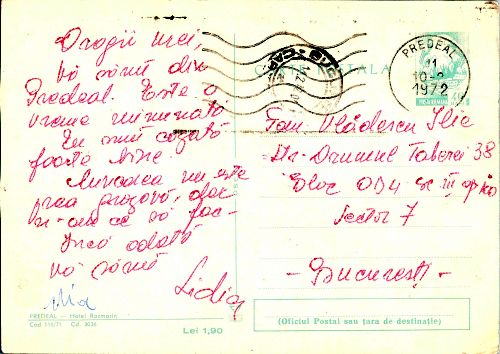 Dragii mei,
Vă scriu din
Predeal. Este o
vreme minunată
Eu sunt cazată
foarte bine
Mîncarea nu este
prea grozavă, dar
n-am ce să fac
Încă odată
vă sărut
Lidia
PREDEAL — Hotel Rozmarin
Cod 116/71 Cd. 3036
Lei 1,90
PREDEAL
11
10-2
1972
POSTA ROMANA
Fam. Vlădescu Ilie
Str. Drumul Taberei 38
Bloc OD4 sc III ap
Sector 7
- București -
(Oficiul Poștal sau țara de destinație)